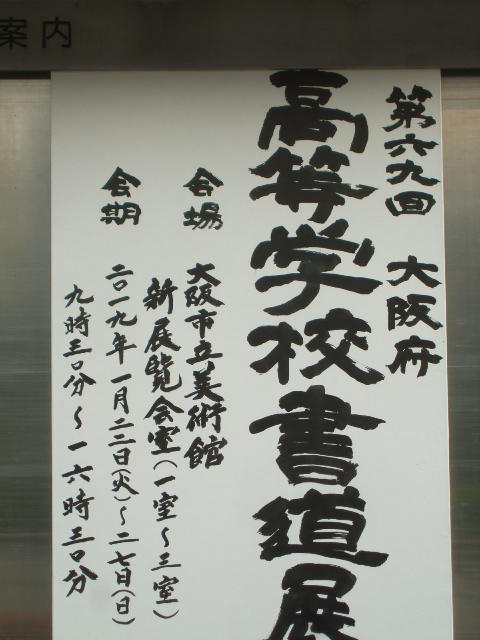 案内
第六九回 大阪府
高等学校書道展
会場 大阪市立美術館
新展覧会室(一室~三室)
会期 二〇一九年一月二二日(火)~二七日(日)
九時三〇分~一六時三〇分